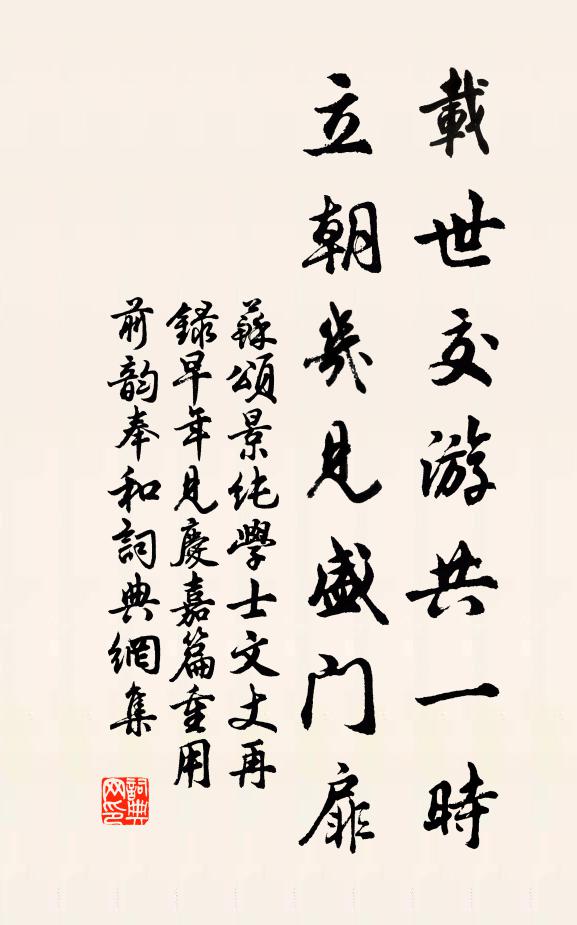 載世交游共一時
立朝幾見盛門扉
蘇頌景純學士文丈再
録早年見慶嘉篇重用
前韵奉和詞典網集
詞典网印